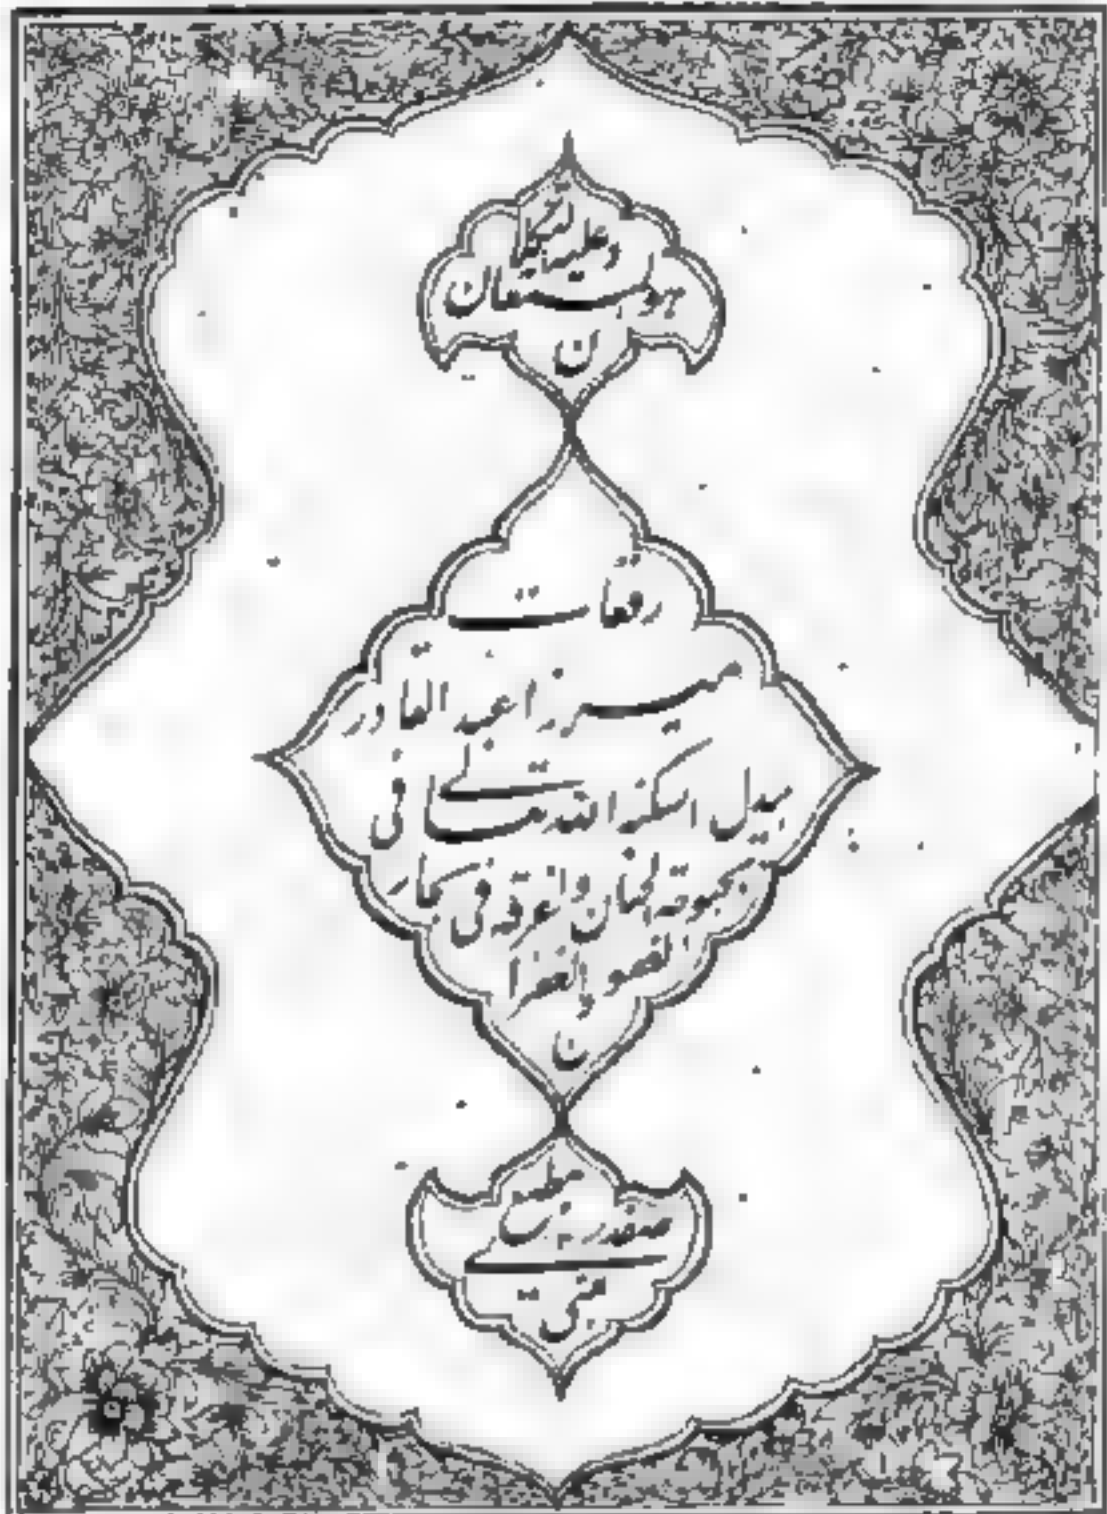 وعلیه التکلا
هو المستعان
ن
رقعات
میرزا عبد القادر
بیدل اسکنه الله تعالی فی
بحبوحة الجنان واغرقه فی بحار
العفو والغفرا
ن
مطبع
صفدری
بمبئی